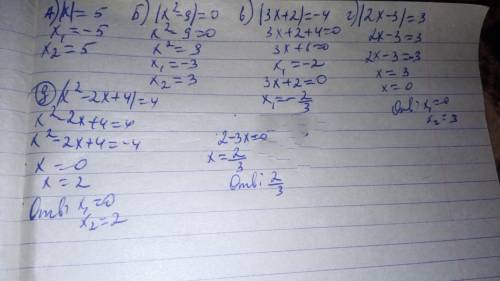 А) |x| = 5
x₁ = -5
x₂ = 5
Б) |x²-9|=0
x²-9=0
x²=9
x₁=-3
x₂=3
в) |3x+2|=-4
3x+2+4=0
3x+6=0
x₁=-2
3x+2=0
x₁=-2/3
г) |2x-3|=3
2x-3=3
2x-3=-3
x=3
x=0
Отв: x₁=0
x₂=3
д) |x²-2x+4|=4
x²-2x+4=4
x²-2x+4=-4
x=0
x=2
Отв: x₁=0
x₂=2
2-3x=0
x=2/3
Отв: 2/3